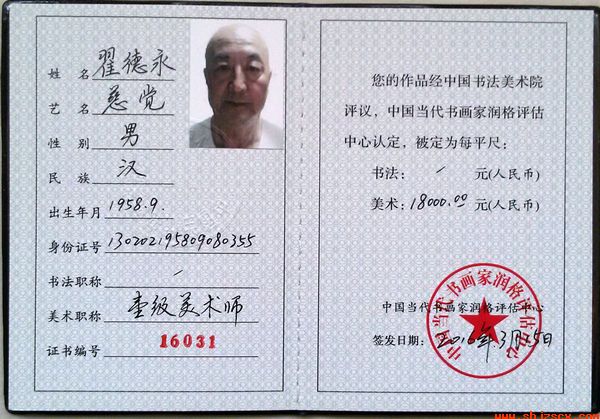 姓 名 翟德永
艺 名 慈觉
性 别 男
民 族 汉
出生年月 1958.9.
身份证号 130202195809080355
书法职称 /
美术职称 壹级美术师
证书编号 16031
您的作品经中国书法美术院
评议，中国当代书画家润格评估
中心认定，被定为每平尺：
书法： / 元(人民币)
美术：18000.00 元(人民币)
中国当代书画家润格评估中心
签发日期：2016年.3月15日
中国当代书画家润格评估中心
www.sbjzscy.com